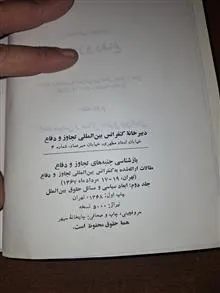 دبیرخانهٔ کنفرانس بین‌المللی تجاوز و دفاع
خیابان استاد مطهری، خیابان میرعماد، شماره ۴
بازشناسی جنبه‌های تجاوز و دفاع
مقالات ارائه‌شده به کنفرانس بین‌المللی تجاوز و دفاع
(تهران، ۱۹-۱۷ مرداد ماه ۱۳۶۷)
جلد دوم: ابعاد سیاسی و مسائل حقوق بین‌الملل
چاپ اول: ۱۳۶۸، تهران
تیراژ: ۵۰۰۰ نسخه
حروفچینی، چاپ و صحافی: چاپخانهٔ سپهر
همهٔ حقوق محفوظ است.